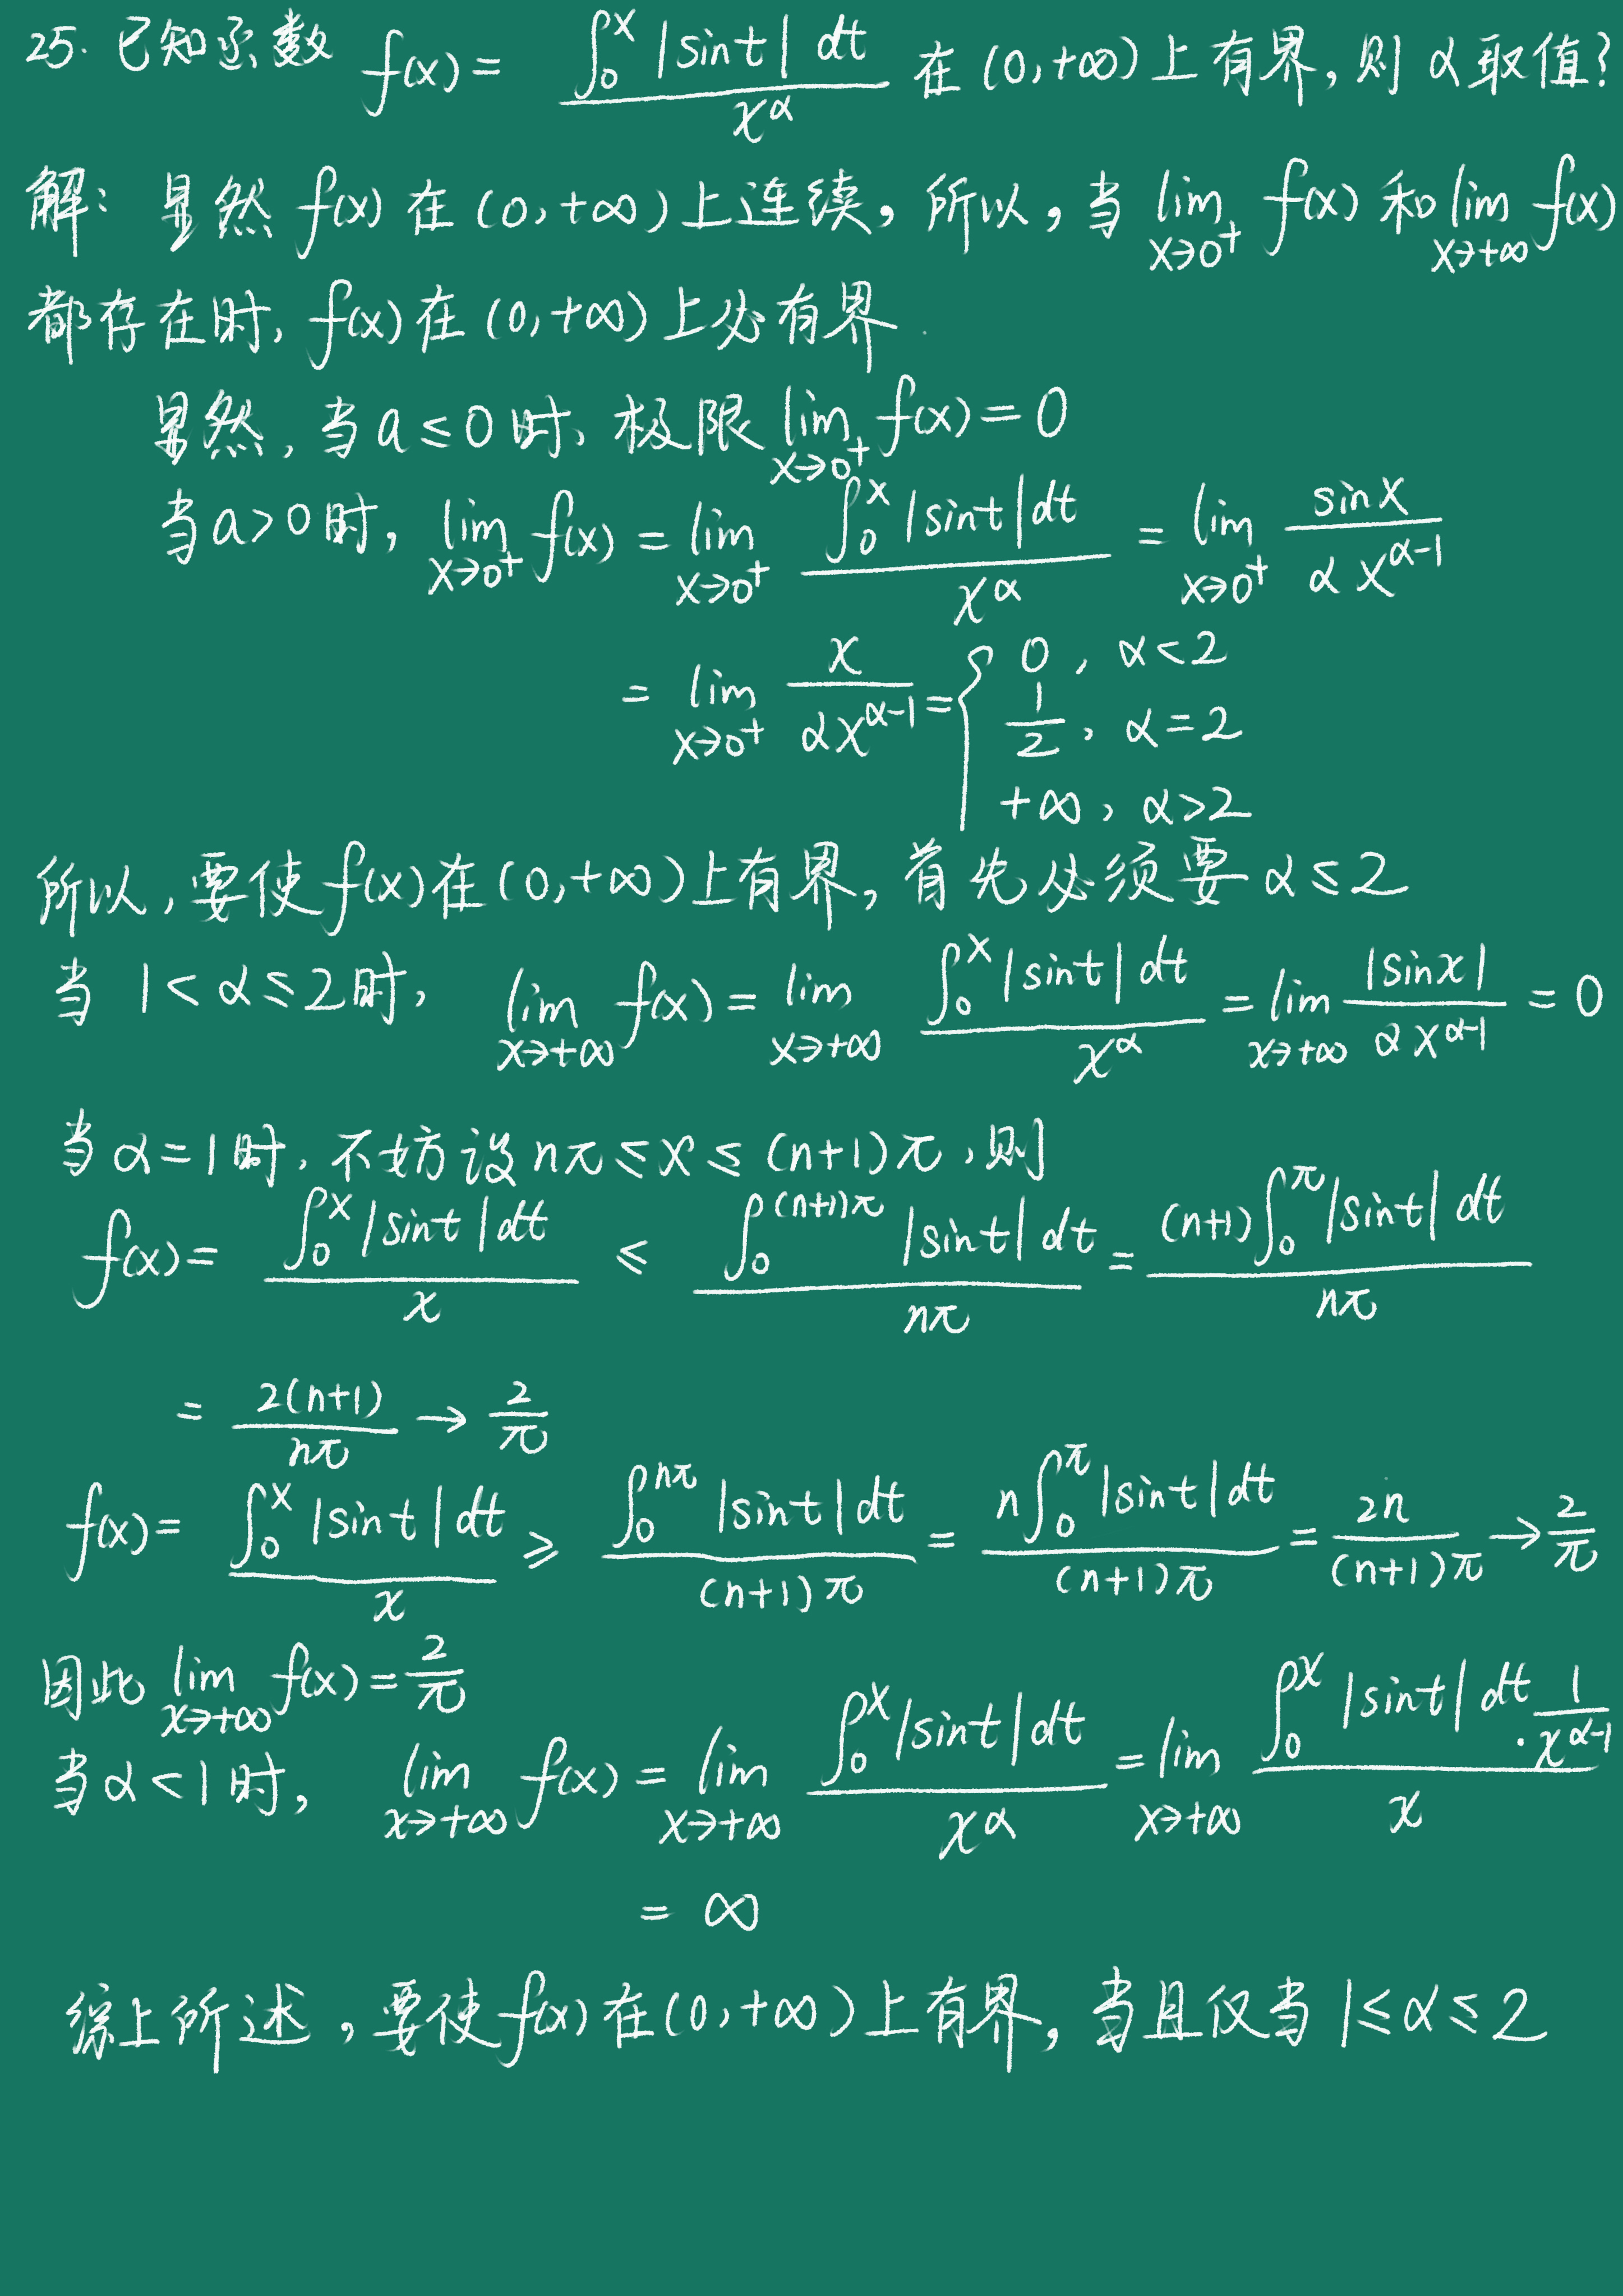 25. 已知函数 f(x) = ∫₀ˣ |sint| dt / x^α 在 (0,+∞) 上有界, 则 α 取值?
解: 显然 f(x) 在 (0,+∞) 上连续, 所以, 当 lim_{x→0⁺} f(x) 和 lim_{x→+∞} f(x)
都存在时, f(x) 在 (0,+∞) 上必有界.
显然, 当 a ≤ 0 时, 极限 lim_{x→0⁺} f(x) = 0
当 a > 0 时, lim_{x→0⁺} f(x) = lim_{x→0⁺} ∫₀ˣ |sint| dt / x^α = lim_{x→0⁺} sinx / αx^{α-1}
= lim_{x→0⁺} x / αx^{α-1} = { 0, α<2
1/2, α=2
+∞, α>2
所以, 要使 f(x) 在 (0,+∞) 上有界, 首先必须要 α ≤ 2
当 1 < α ≤ 2 时, lim_{x→+∞} f(x) = lim_{x→+∞} ∫₀ˣ |sint| dt / x^α = lim_{x→+∞} |sinx| / αx^{α-1} = 0
当 α = 1 时, 不妨设 nπ ≤ x ≤ (n+1)π, 则
f(x) = ∫₀ˣ |sint| dt / x ≤ ∫₀^{(n+1)π} |sint| dt / nπ = (n+1)∫₀^π |sint| dt / nπ
= 2(n+1) / nπ → 2/π
f(x) = ∫₀ˣ |sint| dt / x ≥ ∫₀^{nπ} |sint| dt / (n+1)π = n∫₀^π |sint| dt / (n+1)π = 2n / (n+1)π → 2/π
因此 lim_{x→+∞} f(x) = 2/π
当 α < 1 时, lim_{x→+∞} f(x) = lim_{x→+∞} ∫₀ˣ |sint| dt / x^α = lim_{x→+∞} ∫₀ˣ |sint| dt · 1/x^{α-1} / x
= ∞
综上所述, 要使 f(x) 在 (0,+∞) 上有界, 当且仅当 1 ≤ α ≤ 2